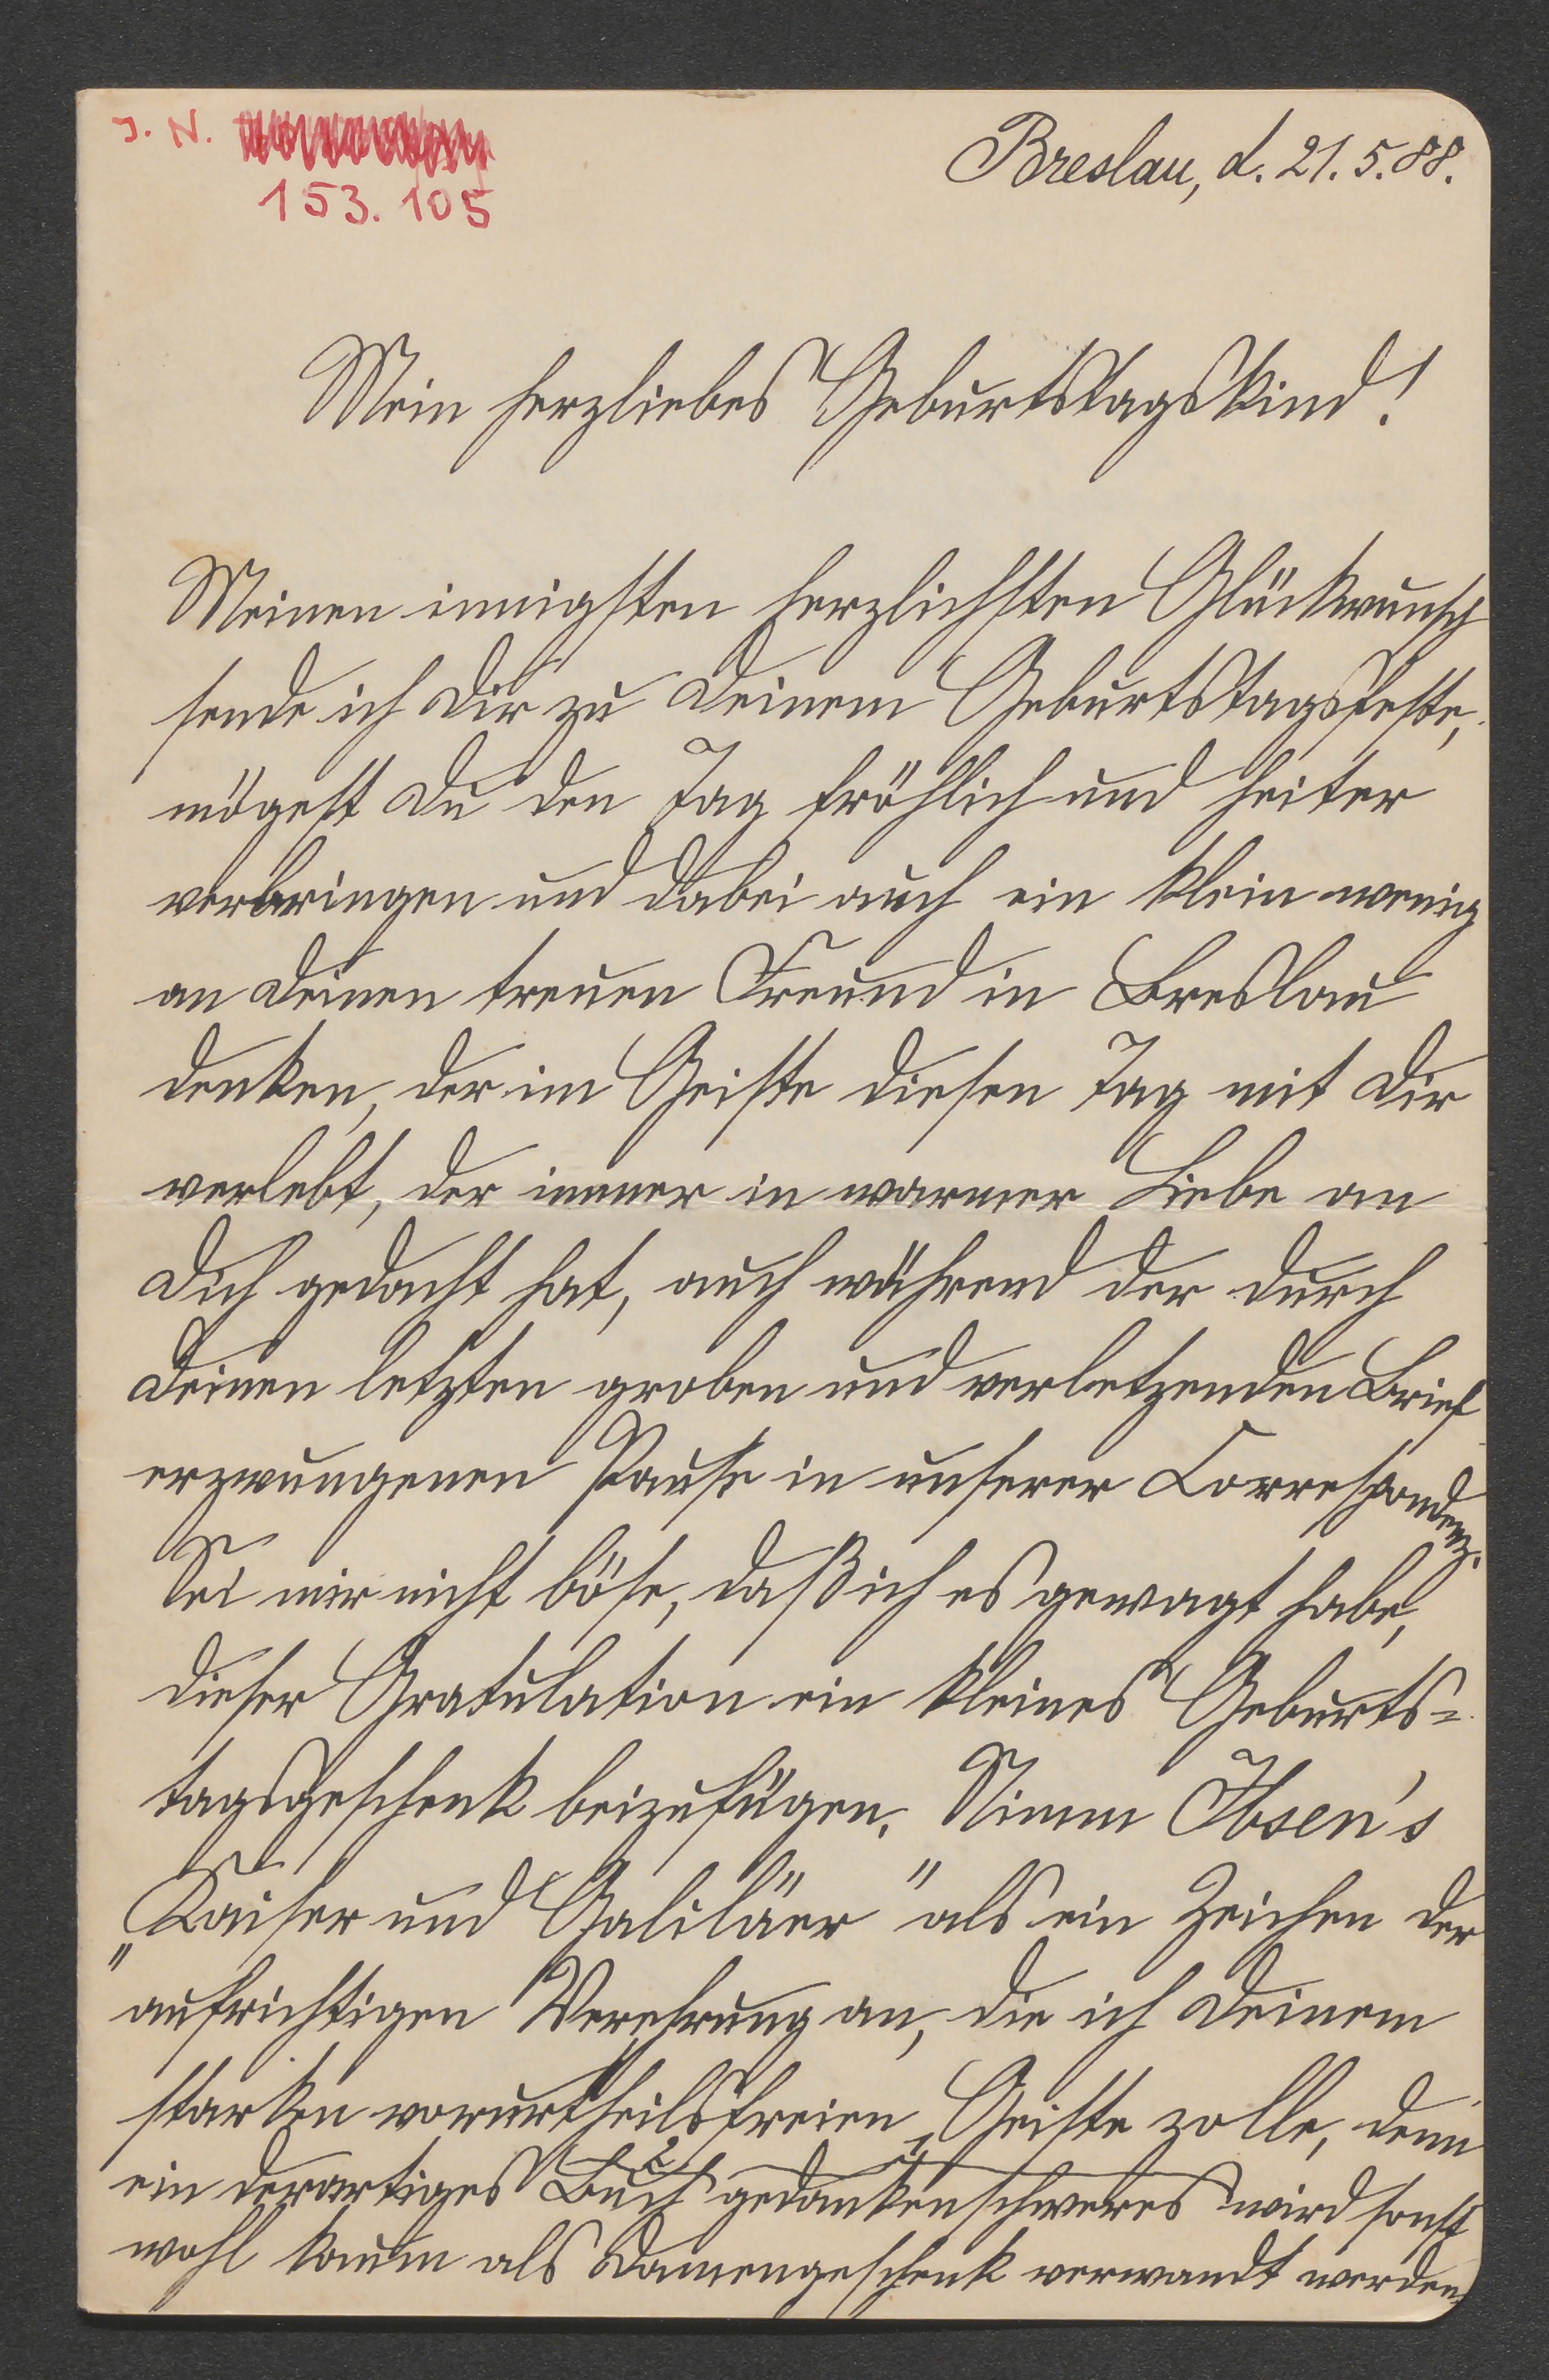 J. N.
153.105
Breslau, d. 21.5.88.
Mein herzliebes Geburtstagskind!
Meinen innigsten herzlichsten Glückwunsch
sende ich Dir zu Deinem Geburtstagsfeste,
mögest Du den Tag fröhlich und heiter
verbringen und dabei auch ein klein wenig
an Deinen treuen Freund in Breslau
denken, der im Geiste diesen Tag mit Dir
verlebt, der immer in warmer Liebe an
Dich gedacht hat, auch während der durch
Deinen letzten groben und verletzenden Brief
erzwungenen Pause in unserer Correspondenz.
Sei mir nicht böse, daß ich es gewagt habe,
dieser Gratulation ein kleines Geburts=
tagsgeschenk beizufügen. Nimm Ibsen's
„Kaiser und Galiläer" als ein Zeichen der
aufrichtigen Verehrung an, die ich Deinem
starken vorurtheilsfreien Geiste zolle, denn
ein derartiges Buch 2 gedankenschweres 1 wird sonst
wohl kaum als Damengeschenk verwandt werden.